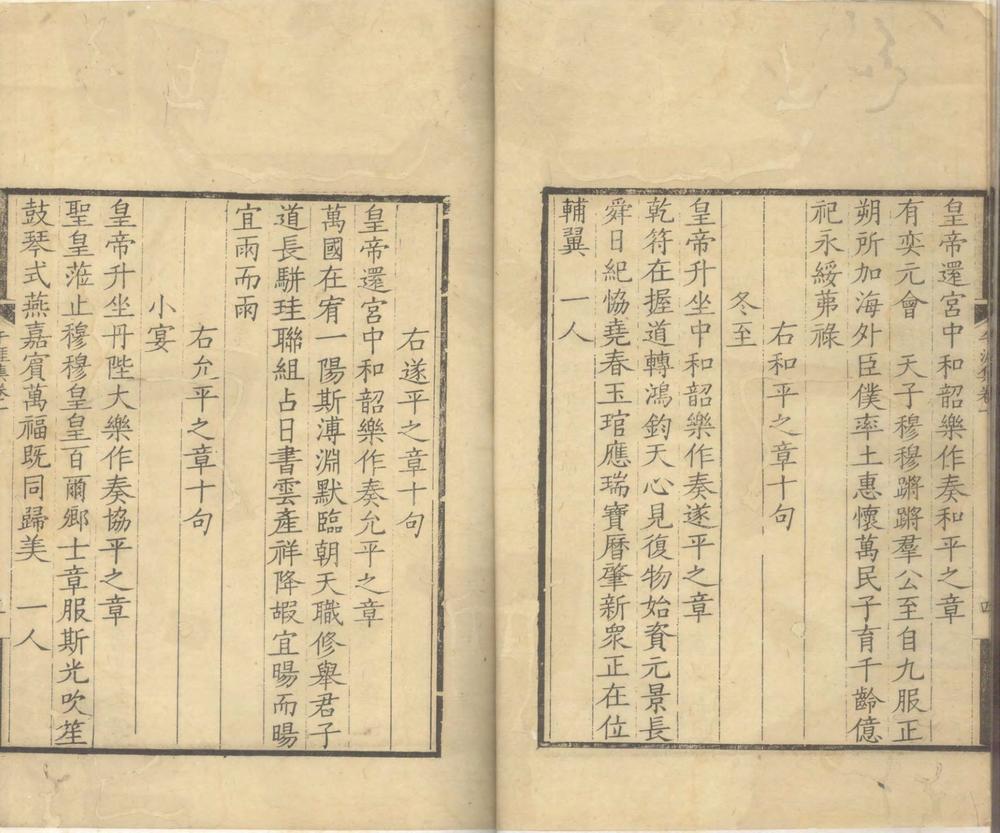 皇帝還宮中和韶樂作奏和平之章
有奕元會　天子穆穆蹌蹌羣公至自九服正
朔所加海外臣僕率土惠懷萬民子育千齡億
祀永綏茀祿
右和平之章十句
冬至
皇帝升坐中和韶樂作奏遂平之章
乾符在握道轉鴻鈞天心見復物始資元景長
舜日紀恊堯春玉琯應瑞寶曆肇新衆正在位
輔翼　一人
右遂平之章十句
皇帝還宮中和韶樂作奏允平之章
萬國在宥一陽斯溥淵默臨朝天職修舉君子
道長駢珪聯組占日書雲產祥降嘏宜暘而暘
宜雨而雨
右允平之章十句
小宴
皇帝升坐丹陛大樂作奏協平之章
聖皇蒞止穆穆皇皇百爾鄉士章服斯光吹笙
鼓琴式燕嘉賓萬福既同歸美　一人